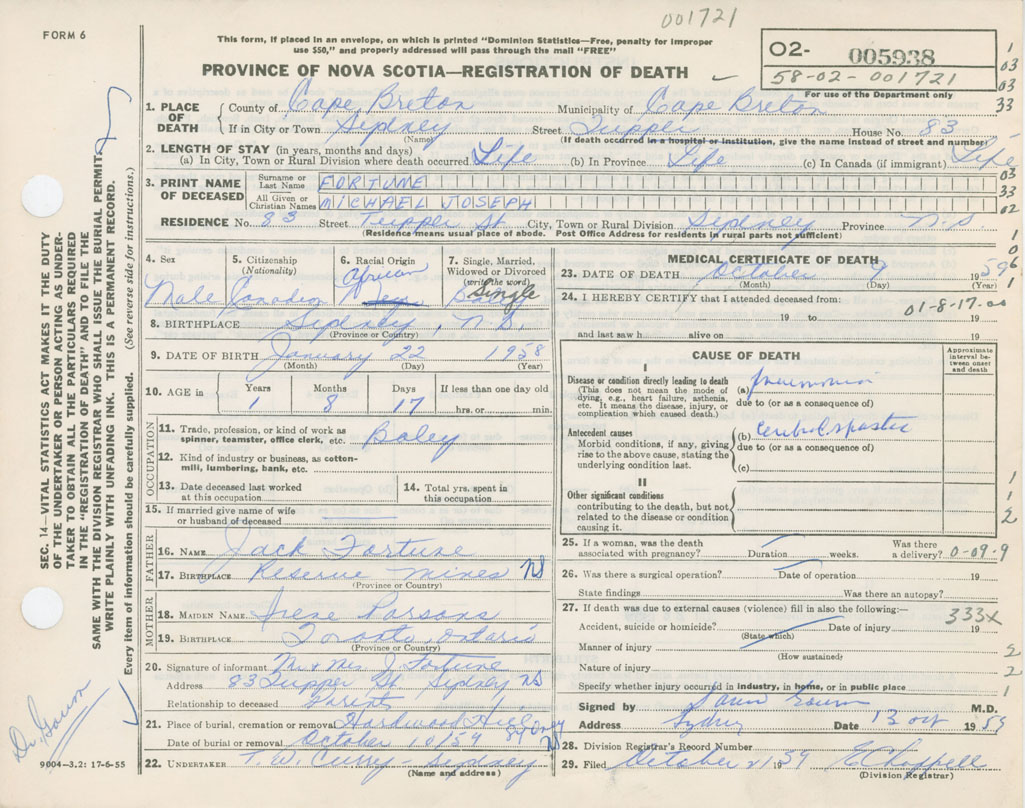 001721
FORM 6
This form, if placed in an envelope, on which is printed "Dominion Statistics—Free, penalty for improper
use $50," and properly addressed will pass through the mail "FREE"
PROVINCE OF NOVA SCOTIA—REGISTRATION OF DEATH
O2- 005938
58-02-001721
For use of the Department only
1
03
03
33
1. PLACE OF DEATH
County of Cape Breton Municipality of Cape Breton
If in City or Town Sydney Street Tupper House No. 83
(Name) (If death occurred in a hospital or institution, give the name instead of street and number)
2. LENGTH OF STAY (in years, months and days)
(a) In City, Town or Rural Division where death occurred Life (b) In Province Life (c) In Canada (if immigrant) Life
3. PRINT NAME OF DECEASED
Surname or Last Name FORTUNE
03
33
All Given or Christian Names MICHAEL JOSEPH
02
RESIDENCE No. 83 Street Tupper St City, Town or Rural Division Sydney Province N.S.
(Residence means usual place of abode. Post Office Address for residents in rural parts not sufficient)
4. Sex Male
5. Citizenship (Nationality) Canadian
6. Racial Origin African
7. Single, Married, Widowed or Divorced (write the word) Single
8. BIRTHPLACE Sydney, N.S.
(Province or Country)
9. DATE OF BIRTH January 22 1958
(Month) (Day) (Year)
10. AGE in Years 1 Months 8 Days 17 If less than one day old hrs. or min.
OCCUPATION
11. Trade, profession, or kind of work as spinner, teamster, office clerk, etc.
12. Kind of industry or business, as cotton-mill, lumbering, bank, etc.
13. Date deceased last worked at this occupation
14. Total yrs. spent in this occupation
15. If married give name of wife or husband of deceased
FATHER
16. NAME Jack Fortune
17. BIRTHPLACE Reserve Mines NS
(Province or Country)
MOTHER
18. MAIDEN NAME Irene Parsons
19. BIRTHPLACE Toronto, Ontario
(Province or Country)
20. Signature of informant Mr & Mrs J. Fortune
Address 83 Tupper St. Sydney NS
Relationship to deceased Parents
21. Place of burial, cremation or removal Hardwood Hill
Date of burial or removal October 10/59
22. UNDERTAKER T. W. Curry - Sydney
(Name and address)
MEDICAL CERTIFICATE OF DEATH
23. DATE OF DEATH October 9 1959
(Month) (Day) (Year)
24. I HEREBY CERTIFY that I attended deceased from:
01-8-17.00
19 to 19
and last saw h alive on 19
CAUSE OF DEATH
Approximate interval between onset and death
I
Disease or condition directly leading to death
(This does not mean the mode of dying, e.g., heart failure, asthenia, etc. It means the disease, injury, or complication which caused death.)
(a) Pneumonia
due to (or as a consequence of)
Antecedent causes
Morbid conditions, if any, giving rise to the above cause, stating the underlying condition last.
(b)
due to (or as a consequence of)
(c)
II
Other significant conditions
contributing to the death, but not related to the disease or condition causing it.
1
1
2
25. If a woman, was the death associated with pregnancy? Duration weeks. Was there a delivery? 0-09-9
26. Was there a surgical operation? Date of operation 19
State findings Was there an autopsy?
27. If death was due to external causes (violence) fill in also the following:—
333X
Accident, suicide or homicide? Date of injury 19
(State which)
Manner of injury
(How sustained)
2
Nature of injury
2
Specify whether injury occurred in industry, in home, or in public place
1
Signed by M.D.
Address Sydney Date 13 Oct 1959
28. Division Registrar's Record Number
29. Filed October 21 1959 E Chappell
(Division Registrar)
SEC. 14—VITAL STATISTICS ACT MAKES IT THE DUTY
OF THE UNDERTAKER OR PERSON ACTING AS UNDER-
TAKER TO OBTAIN ALL THE PARTICULARS REQUIRED
IN THE "REGISTRATION OF DEATH" AND TO FILE THE
SAME WITH THE DIVISION REGISTRAR WHO SHALL ISSUE THE BURIAL PERMIT.
WRITE PLAINLY WITH UNFADING INK. THIS IS A PERMANENT RECORD.
Every item of information should be carefully supplied. (See reverse side for instructions.)
9004—3.2: 17-6-55